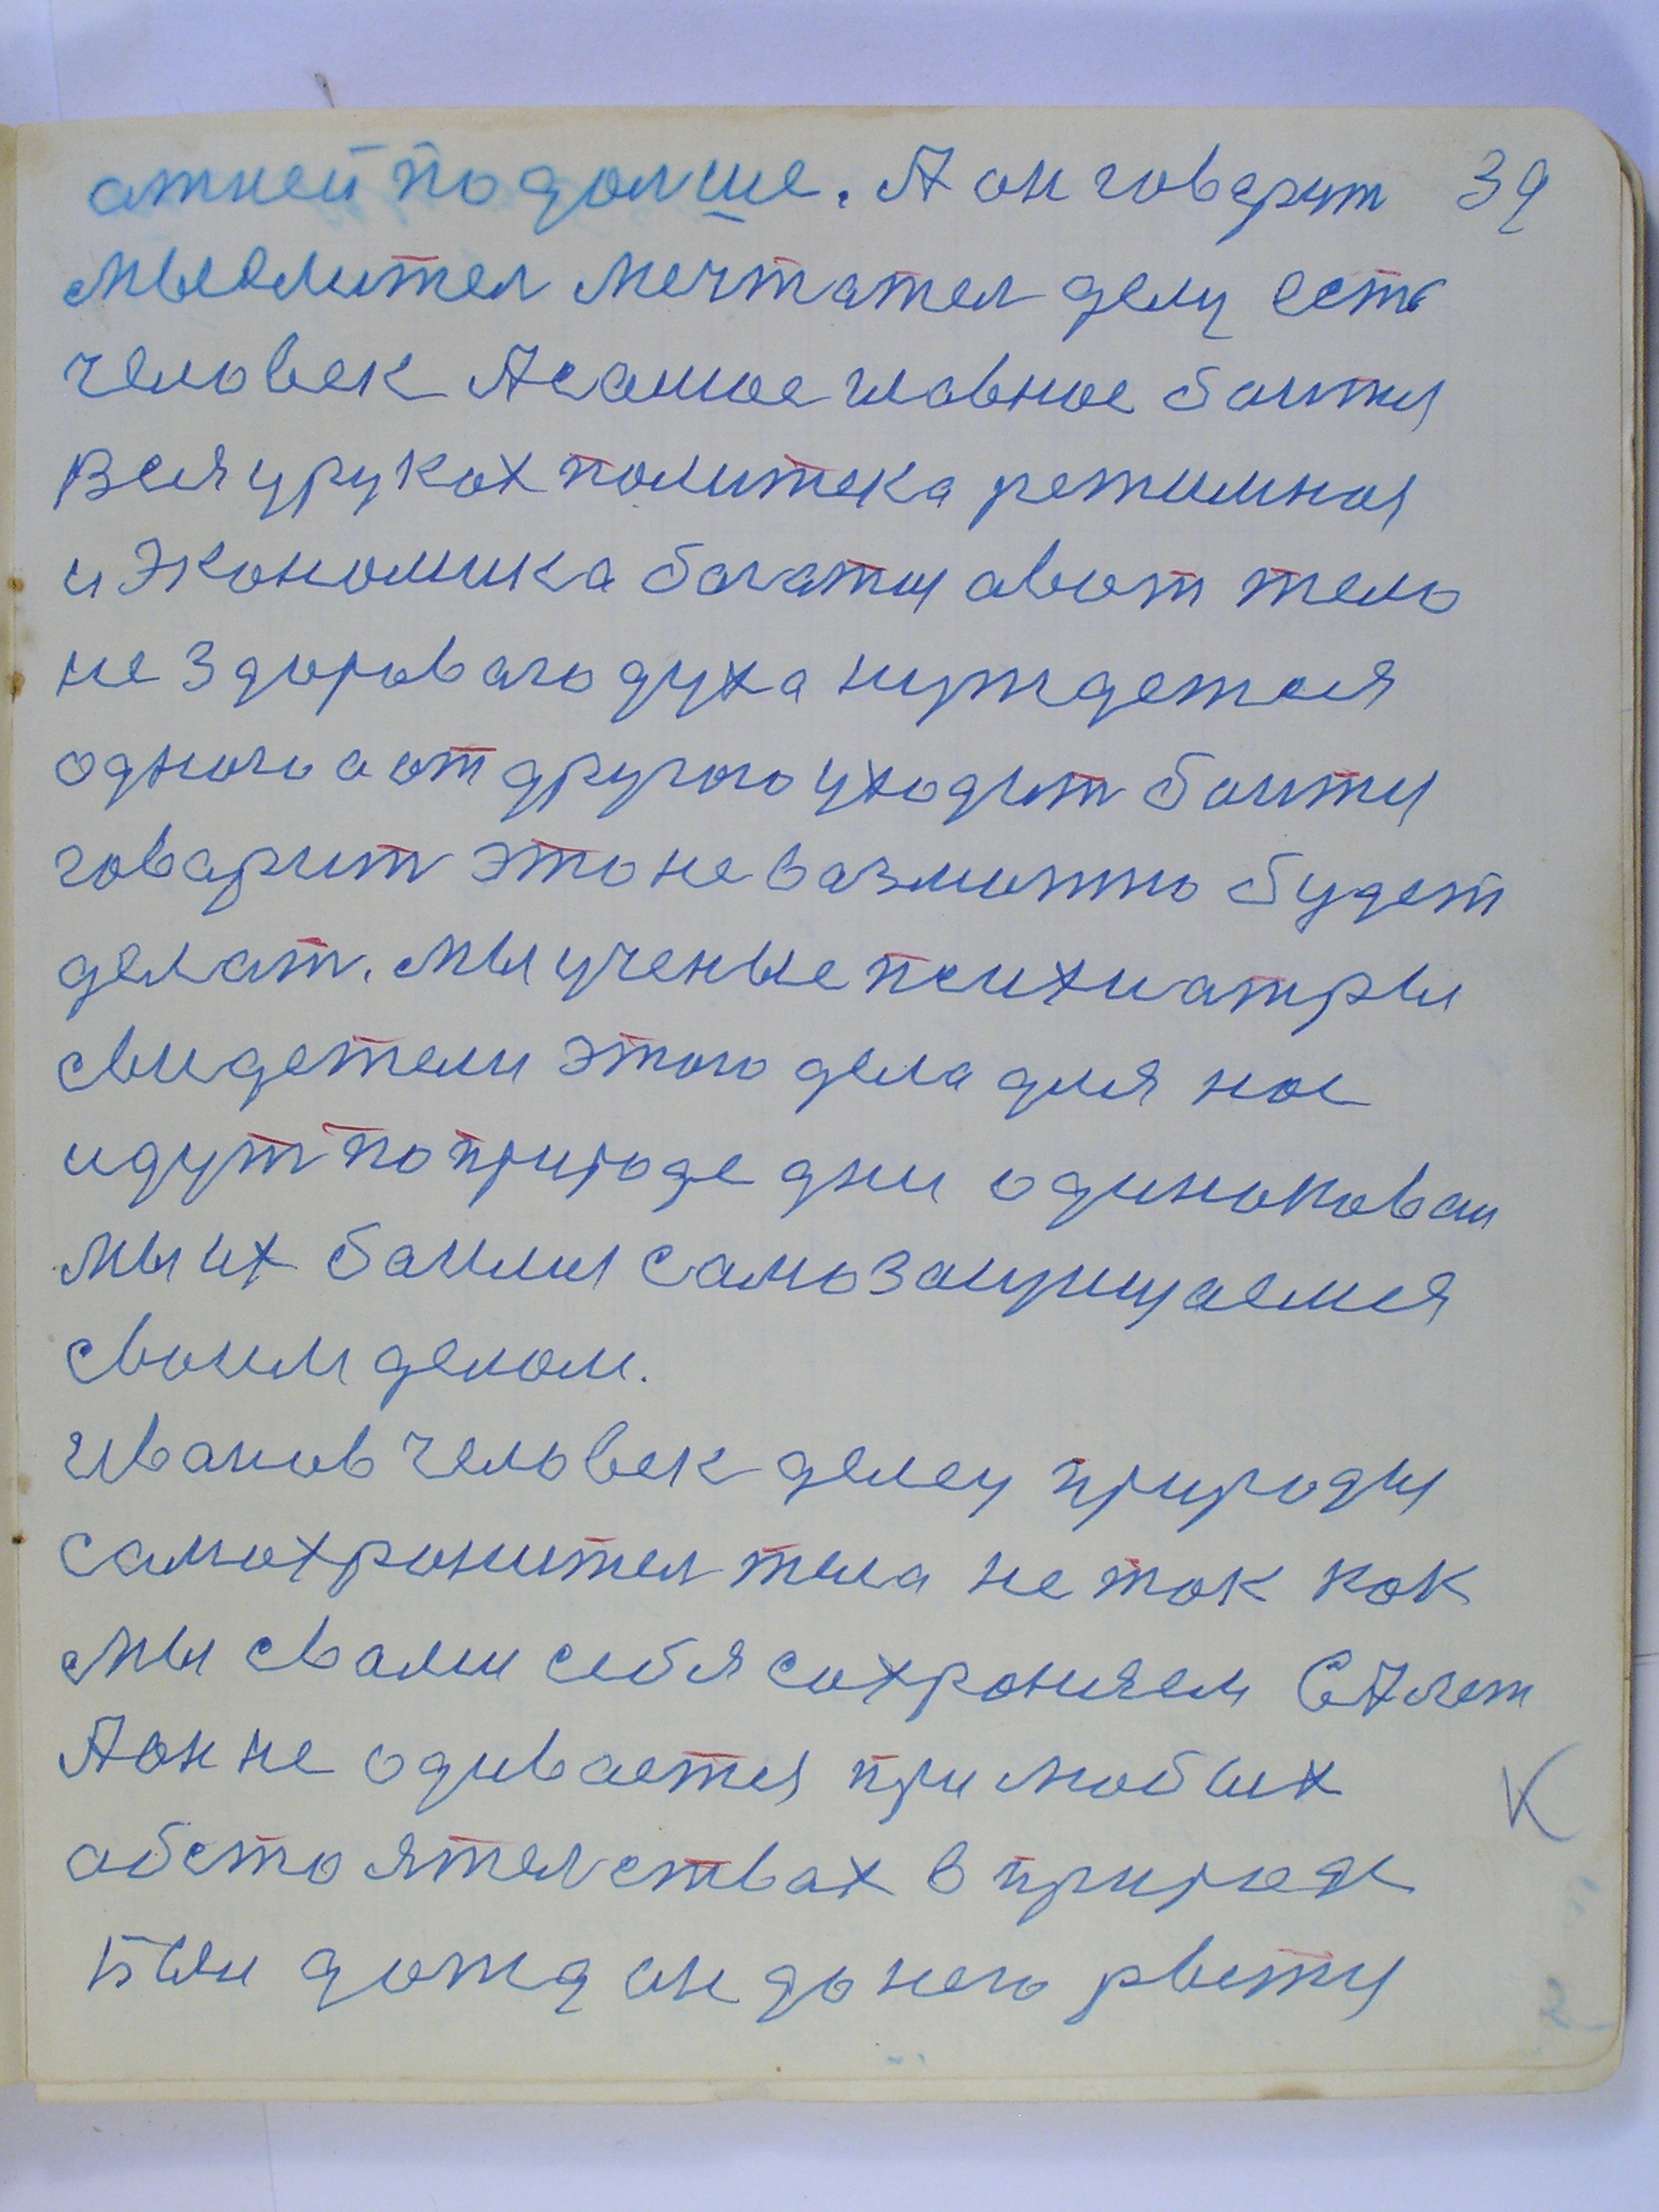 атней по долше. А он говарит 39
мыслител мечтател делу есть
человек А самое главное боится
Вся у руках политека режимная
и экономика багатая авот тело
не здороваго духа нуждается
одного а от другого уходит боится
говарит это не вазможно будет
делат. мы ученые психиатры
свидетели этого дела для нас
идут по природе дни одинаковаи
мы их боимся самозащищаемся
своим делом.
иванов человек делец природы
самохронител тела не так как
мы с вами себя сохроняем 67 лет
А он не одивается при любых
обстоятелствах в природе
Был дожд он до него рвется
К